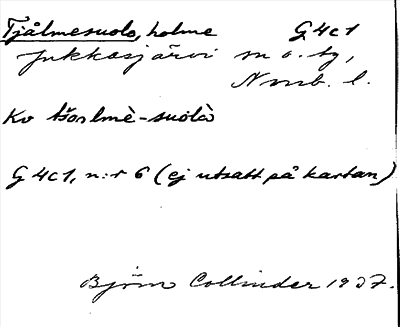 Tjålmesuolo, holme G4c1
Jukkasjärvi sn o. tg,
Nrrb. l.
Kv
G 4c1, n:r 6 (ej utsatt på kartan)
Björn Collinder 1937.